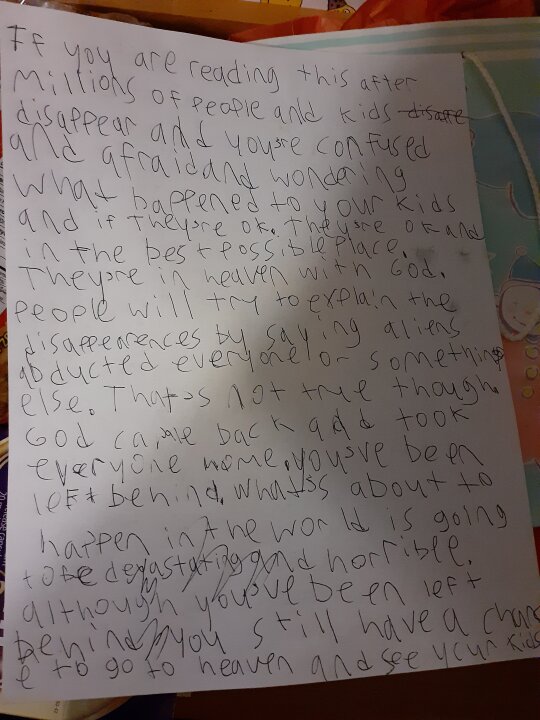 If you are reading this after
Millions of people and kids disappe
disappear and you're confused
and afraid and wondering
what happened to your kids
and if they're ok. they're ok and
in the best possible place.
They're in heaven with God.
people will try to explain the
disappearences by saying aliens
abducted everyone or something
else. That's not true though.
God came back and took
everyone home. you've been
left behind. what's about to
happen in the world is going
to be devastating and horrible.
although you've been left
behind you still have a chanc
e to go to heaven and see your kids